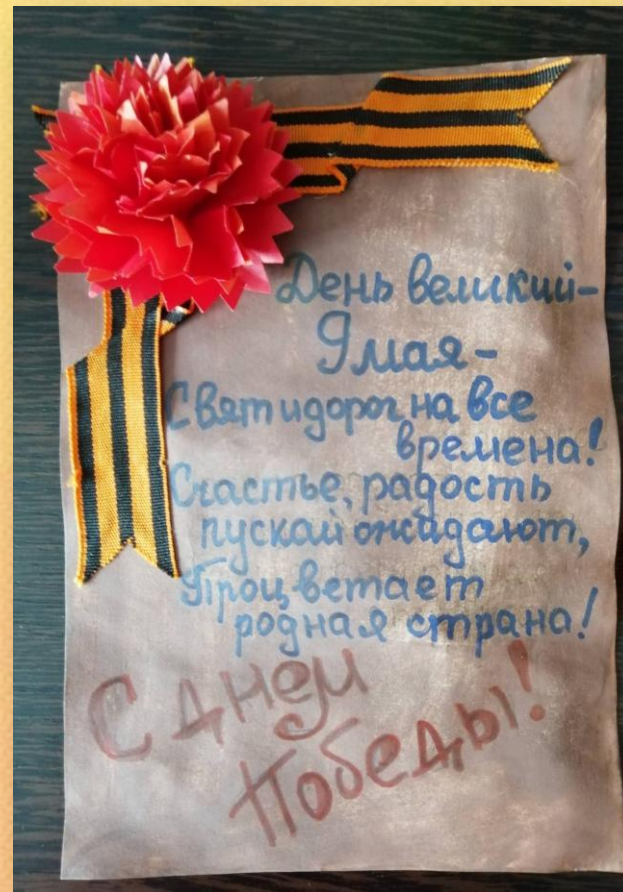 День великий-
9 мая-
Свят и дорог на все
времена!
Счастье, радость
пускай ожидают,
Процветает
родная страна!
С Днем
Победы!